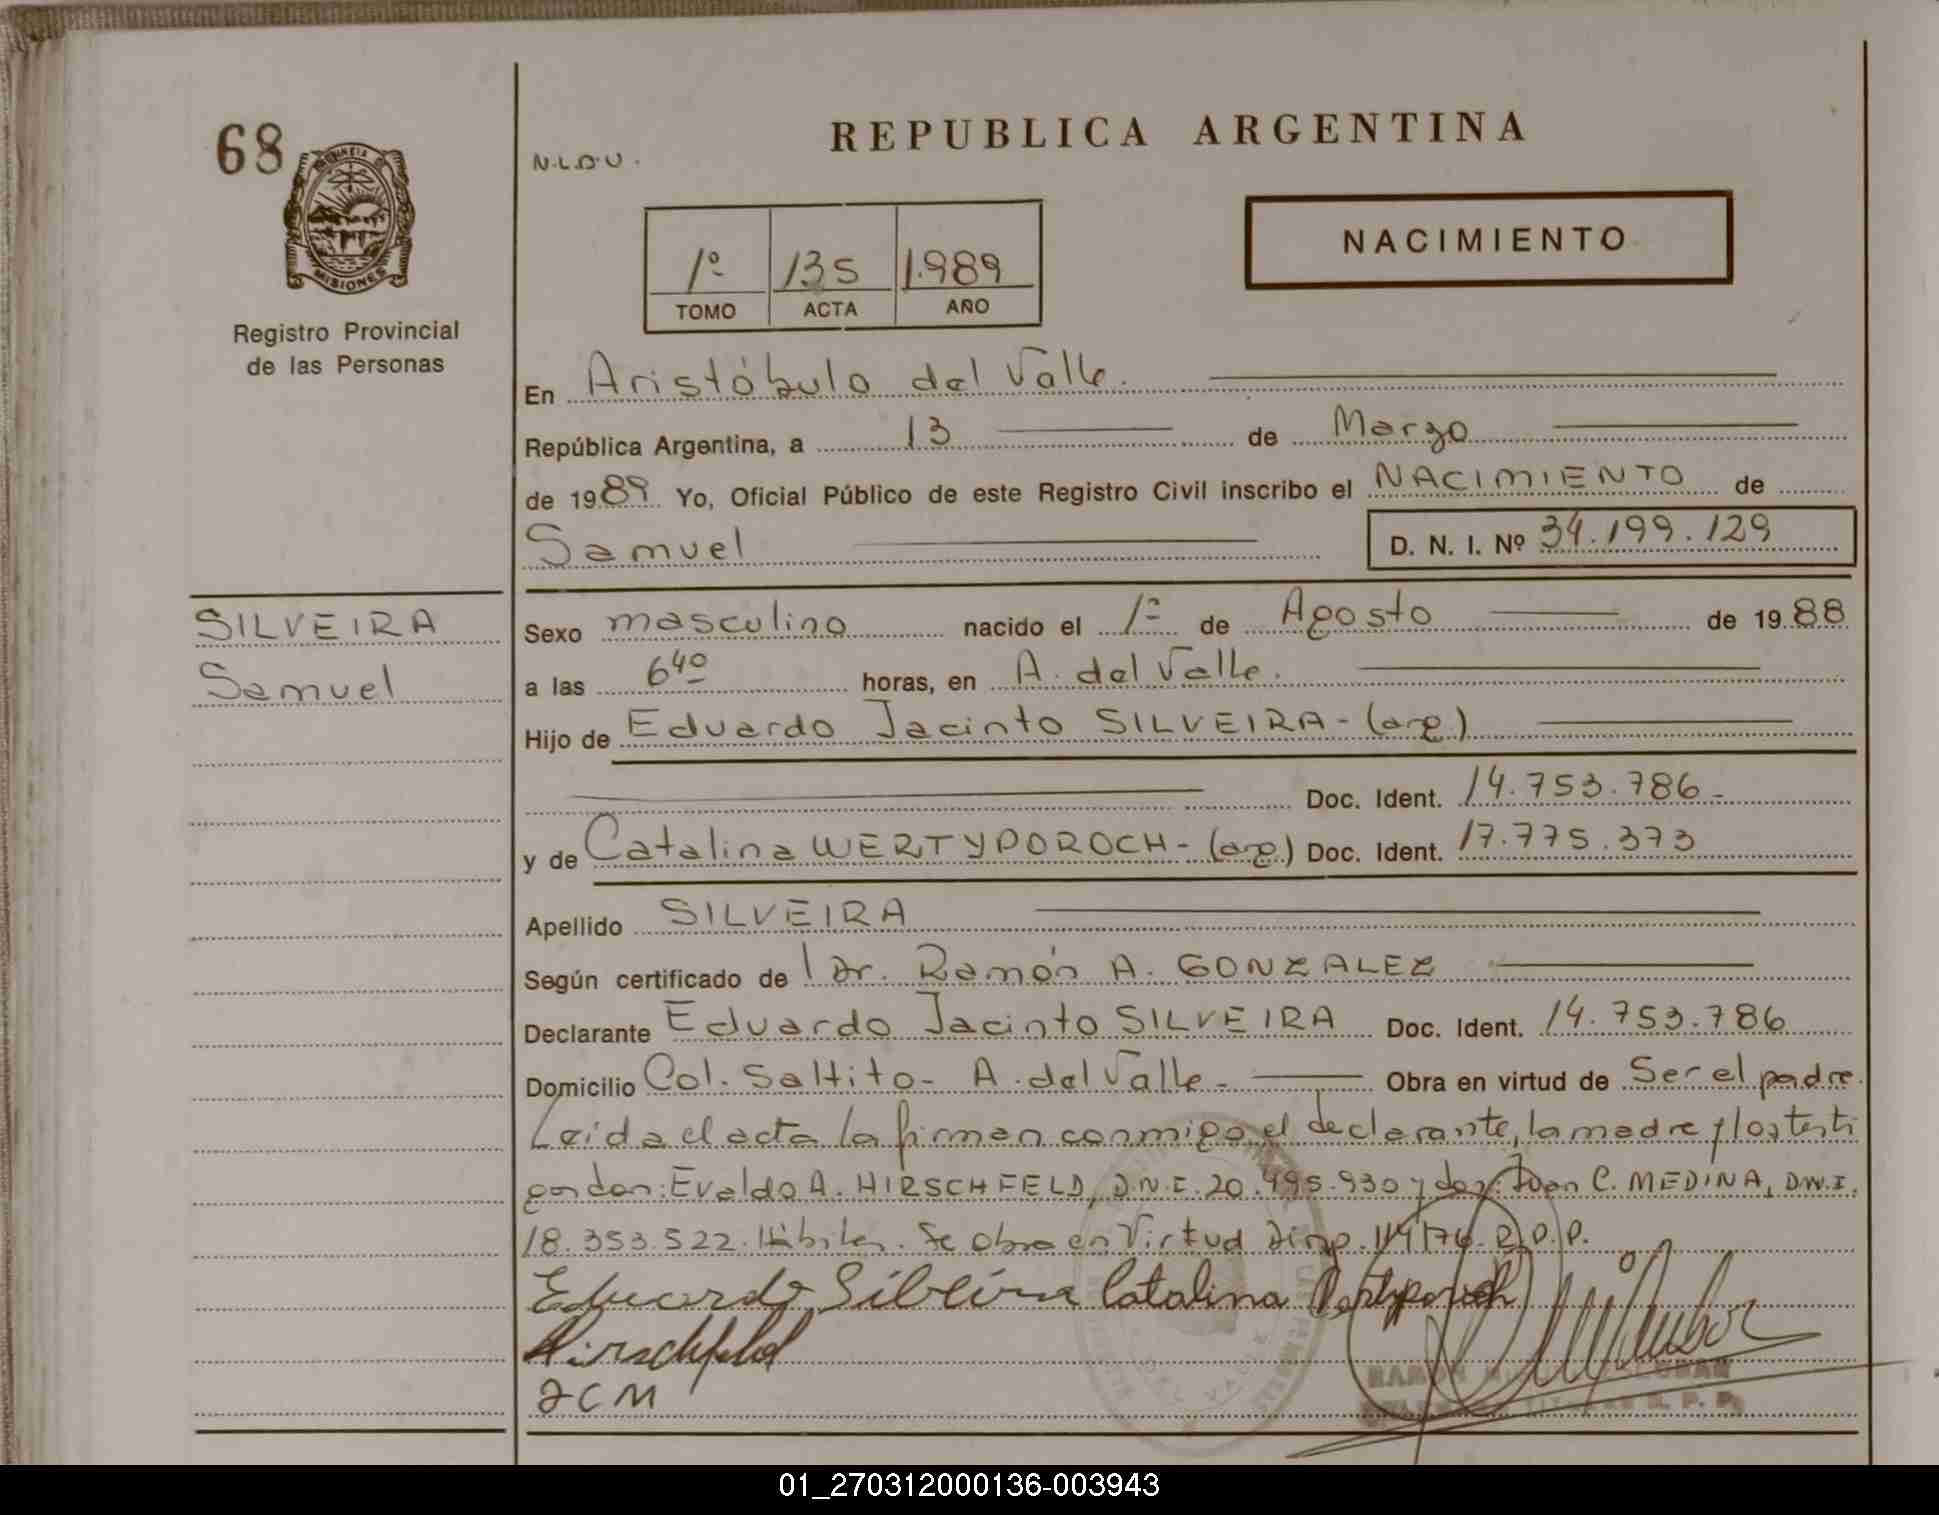 68
PROVINCIA DE
MISIONES
Registro Provincial
de las Personas
SILVEIRA
Samuel
N.L.D.U.
REPUBLICA ARGENTINA
1º 135 1.989
TOMO ACTA AÑO
NACIMIENTO
En Aristóbulo del Valle.
República Argentina, a 13 de Marzo
de 1989 Yo, Oficial Público de este Registro Civil inscribo el NACIMIENTO de
Samuel D. N. I. Nº 34.199.129
Sexo masculino nacido el 1º de Agosto de 1988
a las 6 40 horas, en A. del Valle.
Hijo de Eduardo Jacinto SILVEIRA - (arg)
Doc. Ident. 14.753.786 -
y de Catalina WERTYPOROCH - (arg) Doc. Ident. 17.775.373
Apellido SILVEIRA
Según certificado de l Dr. Ramón A. GONZALEZ
Declarante Eduardo Jacinto SILVEIRA Doc. Ident. 14.753.786
Domicilio Col. Saltito - A. del Valle - Obra en virtud de Ser el padre.
Leida el acta la firman conmigo el declarante, la madre y los testi
gos don: Evaldo A. HIRSCHFELD, D.N.I. 20.495.930 y don: Juan C. MEDINA, D.N.I.
18.353.522. Hábiles. Se obra en Virtud Disp. 114/76 R.P.P.
Eduardo Silveira Catalina
Hirschfeld
JCM
DEL VALLE
RAMON
R. P. P.
01_270312000136-003943